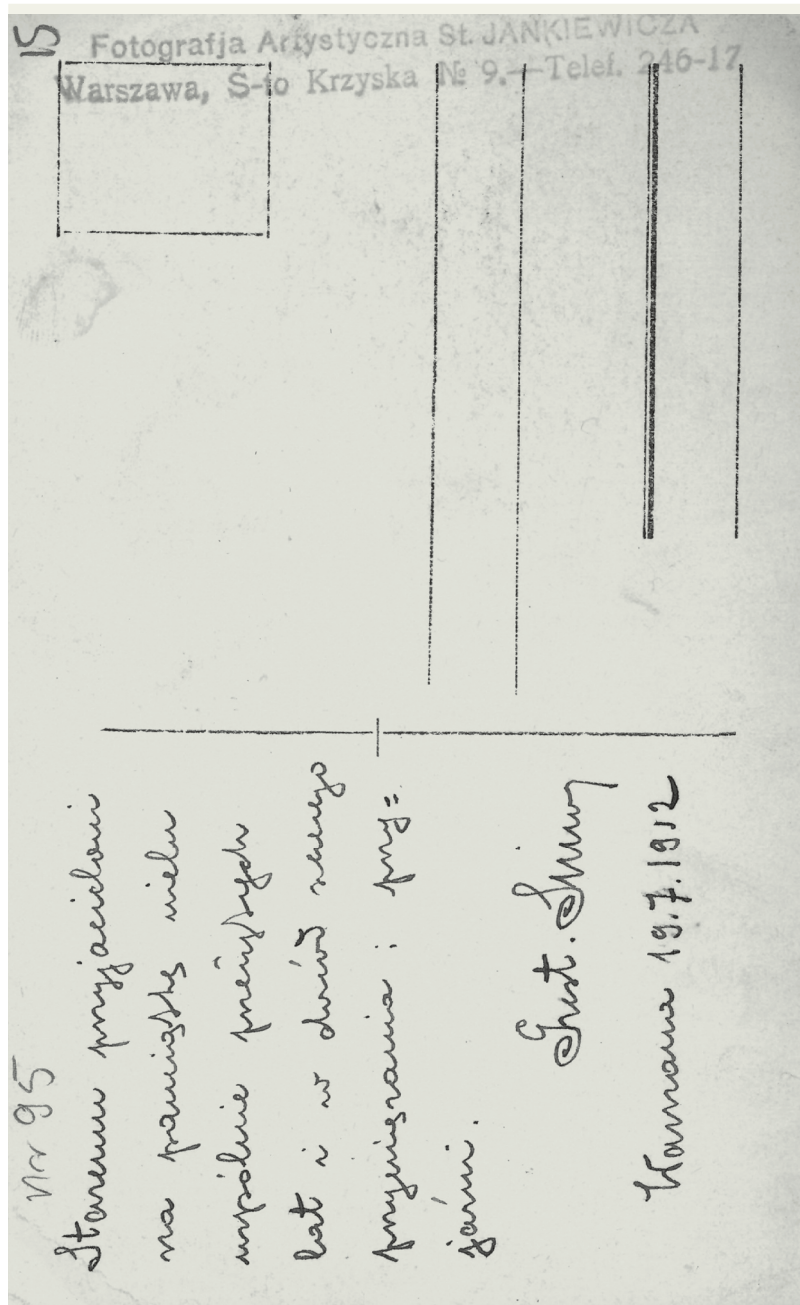 15
Fotografja Artystyczna St. JANKIEWICZA
Warszawa, S-to Krzyska № 9.—Telef. 246-17
Nr 95
Staremu przyjacielowi
na pamiątkę wielu
wspólnie przeżytych
lat i w dowód szczerego
przywiązania i przy=
jaźni.
Gust.
Warszawa 19.7.1912